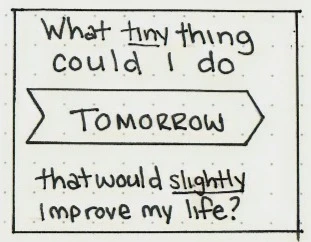 What tiny thing
could I do
TOMORROW
that would slightly
improve my life?